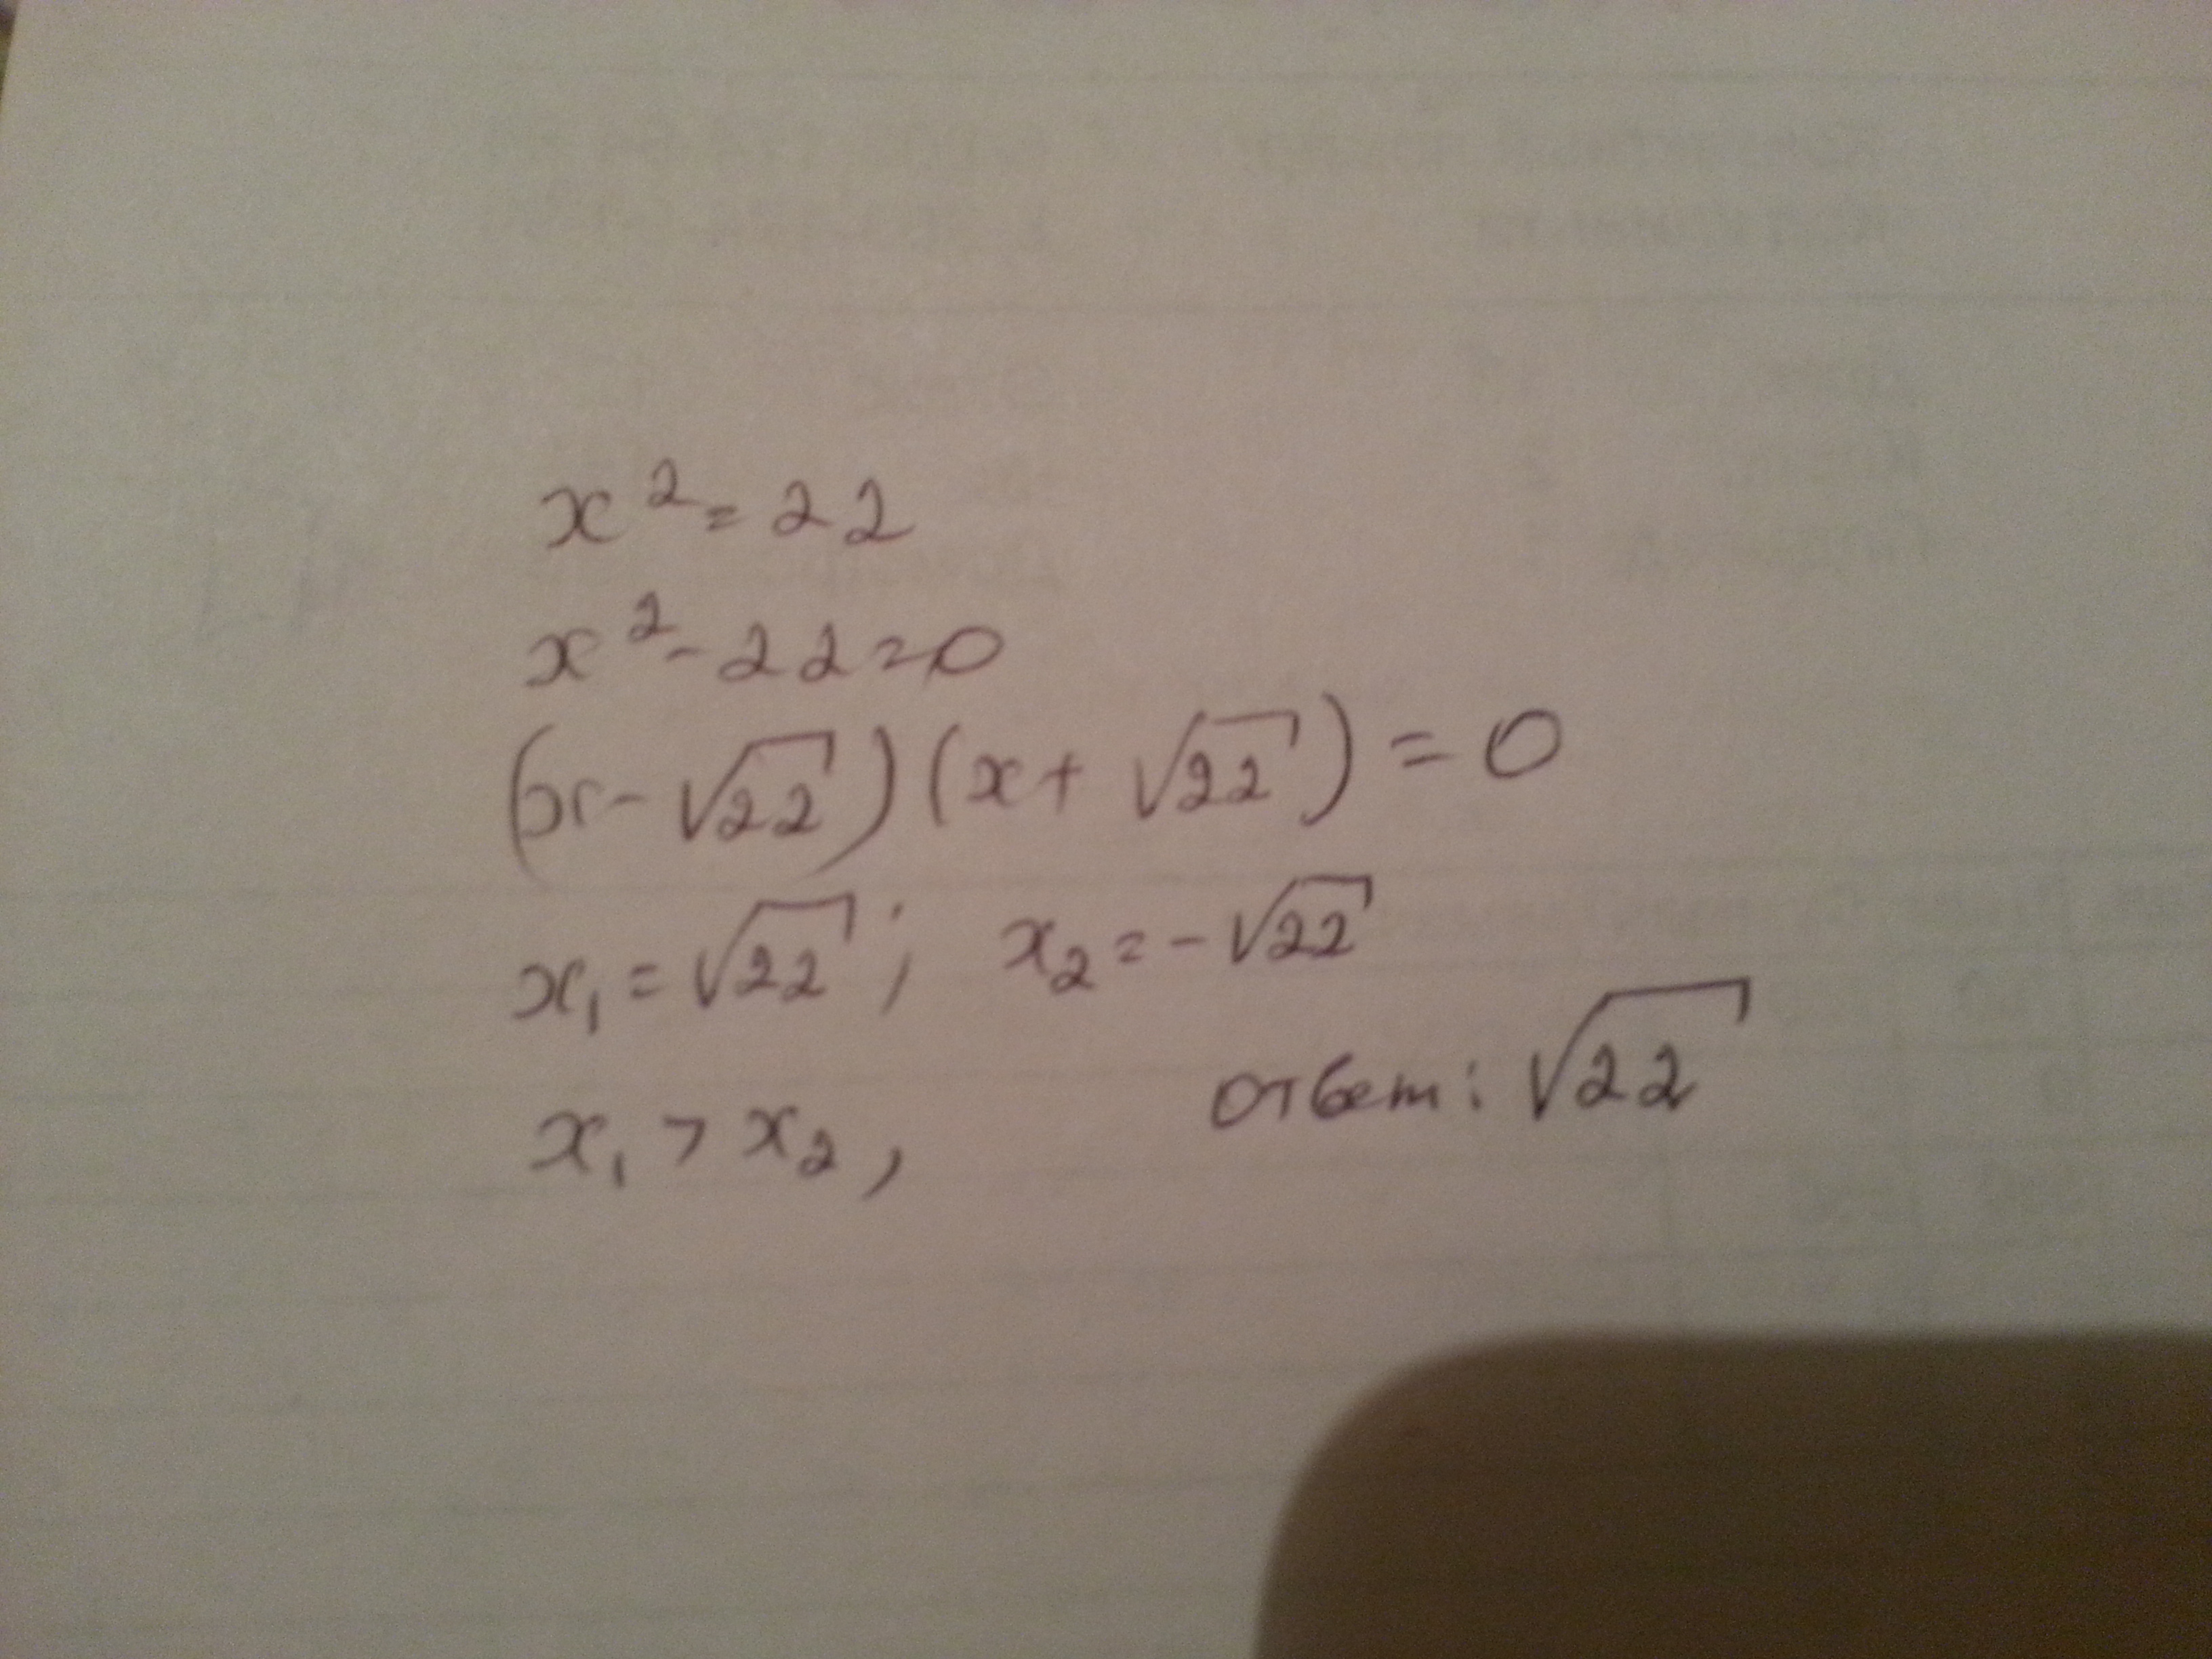 x² = 22
x² - 22 = 0
(x - √22)(x + √22) = 0
x₁ = √22; x₂ = -√22
x₁ > x₂, ответ: √22